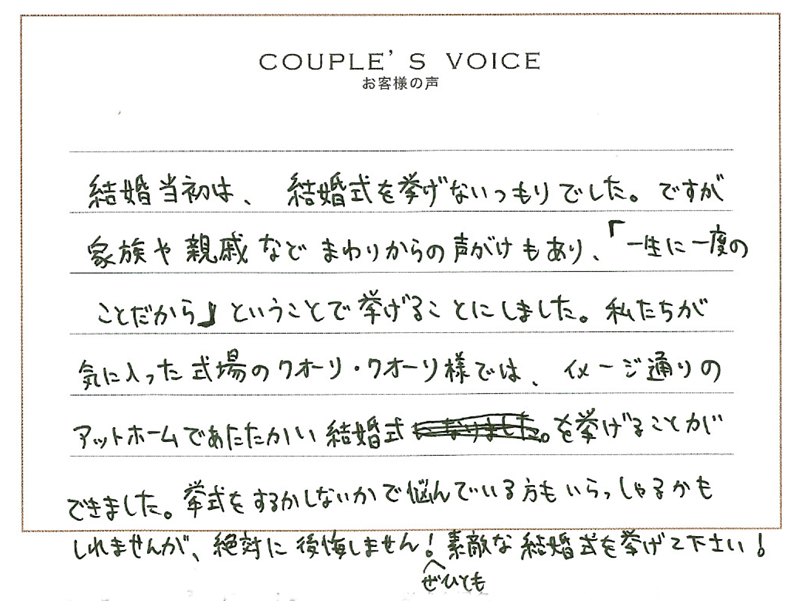 COUPLE'S VOICE
お客様の声
結婚当初は、結婚式を挙げないつもりでした。ですが
家族や親戚などまわりからの声がけもあり、「一生に一度の
ことだから」ということで挙げることにしました。私たちが
気に入った式場のクオーリ・クオーリ様では、イメージ通りの
アットホームであたたかい結婚式になりました。を挙げることが
できました。挙式をするかしないかで悩んでいる方もいらっしゃるかも
しれませんが、絶対に後悔しません!素敵な結婚式を挙げて下さい!
ぜひとも